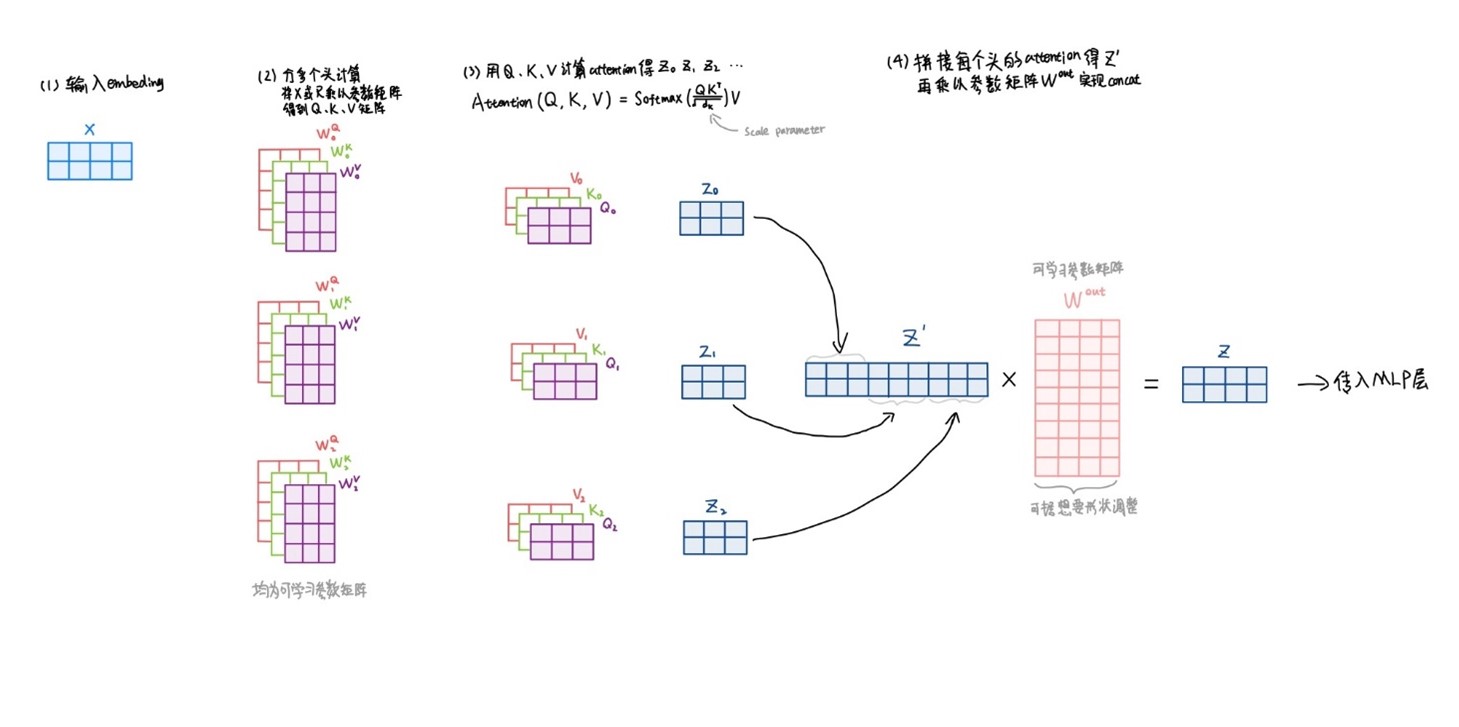 (1) 输入embeding
X
(2) 分多个头计算
将X或R乘以参数矩阵
得到Q、K、V矩阵
W₀Q
W₀K
W₀V
W₁Q
W₁K
W₁V
W₂Q
W₂K
W₂V
均为可学习参数矩阵
(3) 用Q、K、V计算attention得Z₀ Z₁ Z₂ ...
Attention(Q, K, V) = Softmax(QKᵀ/√dk)V
Scale parameter
V₀
K₀
Q₀
Z₀
V₁
K₁
Q₁
Z₁
V₂
K₂
Q₂
Z₂
(4) 拼接每个头的attention得Z'
再乘以参数矩阵Wout实现concat
Z'
×
可学习参数矩阵
Wout
可据想要形状调整
=
Z
→传入MLP层